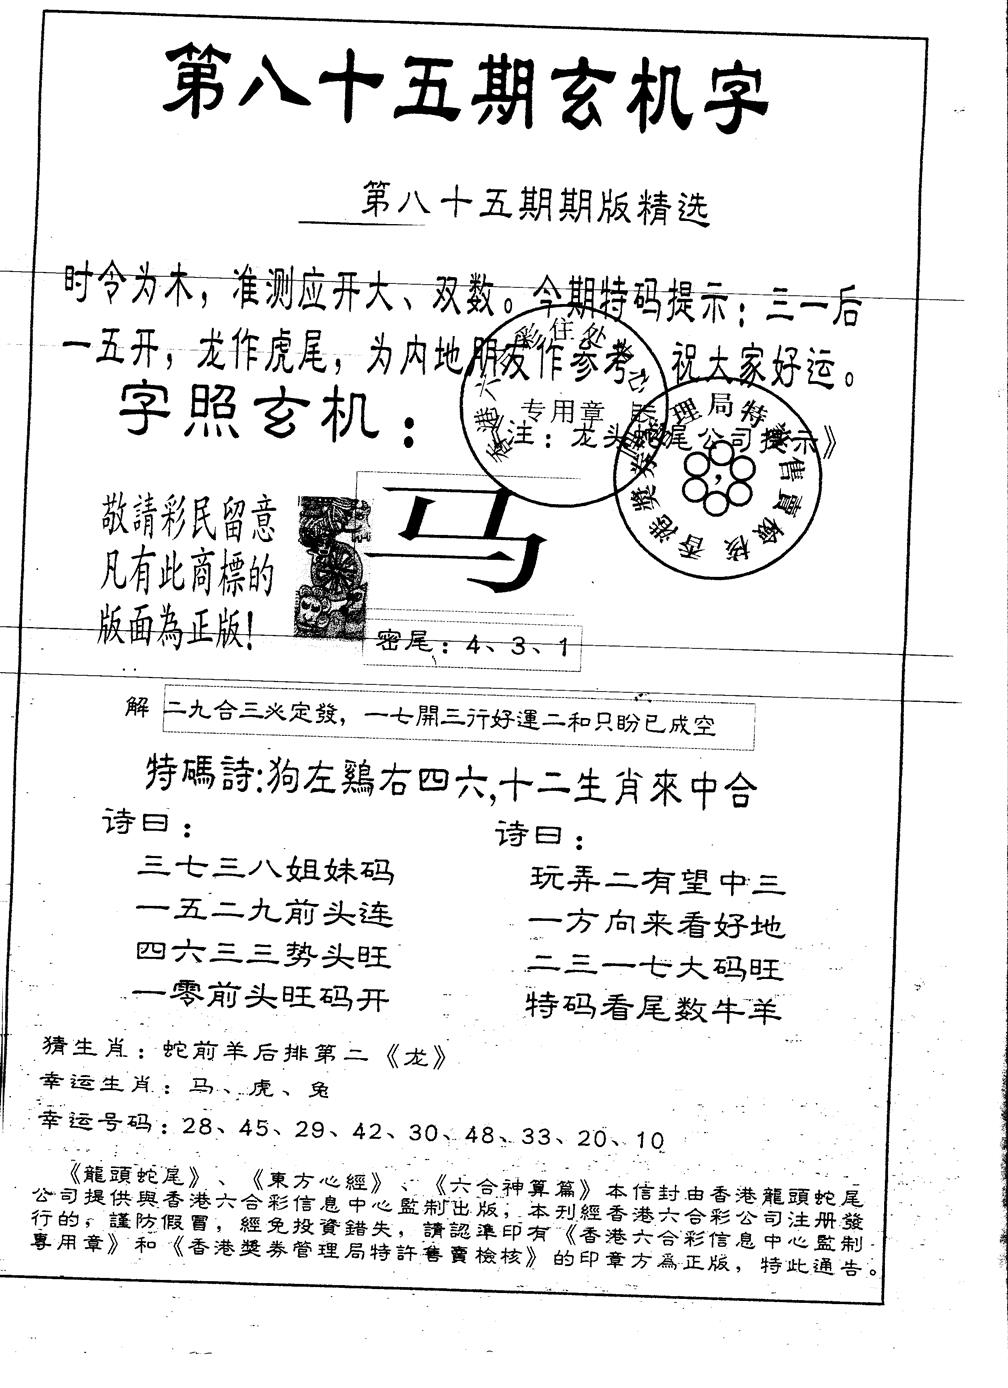 第八十五期玄机字
第八十五期期版精选
时令为木，准测应开大、双数。今期特码提示：三一后
一五开，龙作虎尾，为内地朋友作参考，祝大家好运。
字照玄机：
专用章
注：龙头蛇尾公司提示》
香港獎券管理局特許售賣檢核
敬請彩民留意
凡有此商標的
版面為正版！
马
密尾：4、3、1
解 二九合三必定發，一七開三行好運二和只盼已成空
特碼詩:狗左鷄右四六,十二生肖來中合
诗曰：
三七三八姐妹码
一五二九前头连
四六三三势头旺
一零前头旺码开
诗曰：
玩弄二有望中三
一方向来看好地
二三一七大码旺
特码看尾数牛羊
猜生肖：蛇前羊后排第二《龙》
幸运生肖：马、虎、兔
幸运号码：28、45、29、42、30、48、33、20、10
《龍頭蛇尾》、《東方心經》、《六合神算篇》本信封由香港龍頭蛇尾
公司提供與香港六合彩信息中心監制出版，本刊經香港六合彩公司注册發
行的，謹防假冒，經免投資錯失，請認準印有《香港六合彩信息中心監制
專用章》和《香港獎券管理局特許售賣檢核》的印章方為正版，特此通告。